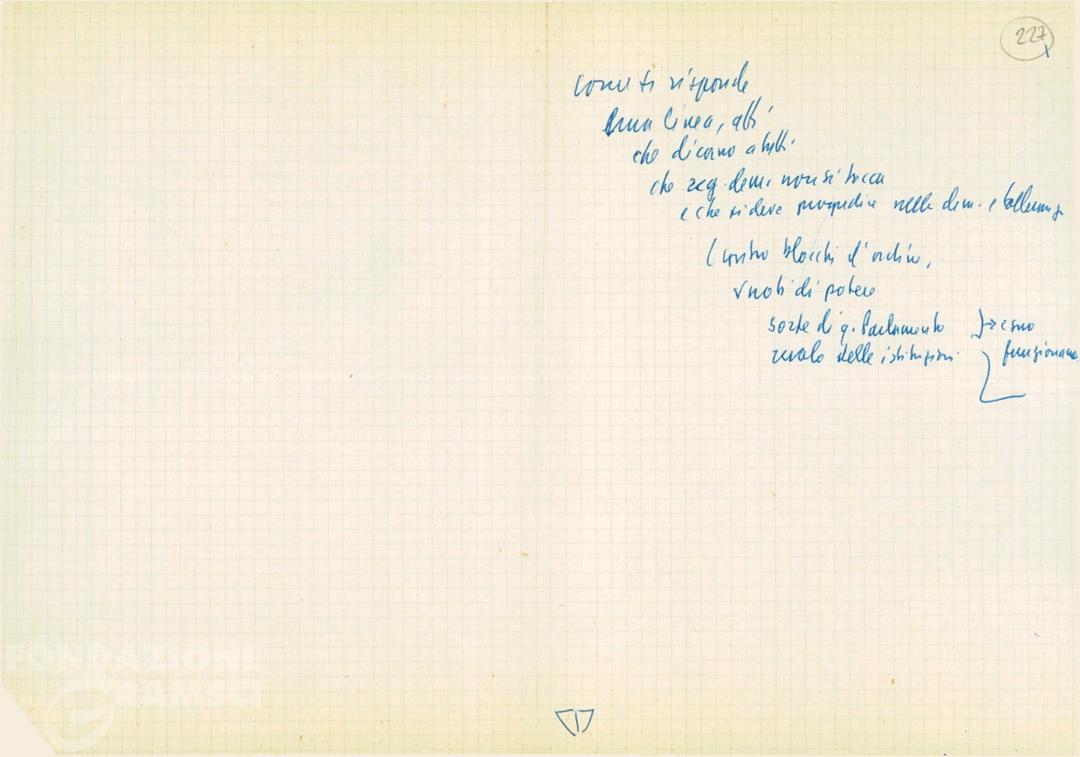 227
come si risponde
una linea, atti
che dicano a tutti
che reg. dem. non si tocca
e che si deve procedere nella dem. e
Contro blocchi d'ordine,
vuoti di potere
sorte di q. Parlamento } → esso
ruolo delle istituzioni funzionano
FONDAZIONE
GRAMSCI